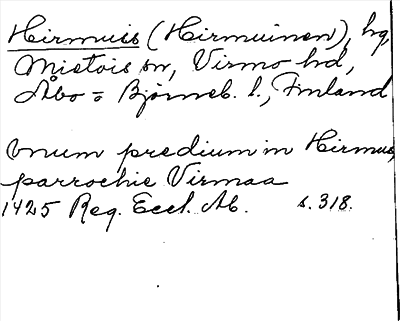 Hirmuis (Hirmuinen), hg,
Mietois sn, Virmo hd,
Åbo = Björneb. l., Finland
Unum predium in Hirmus,
parrochie Virmaa
1425 Reg. Eccl. Ab. s. 318.